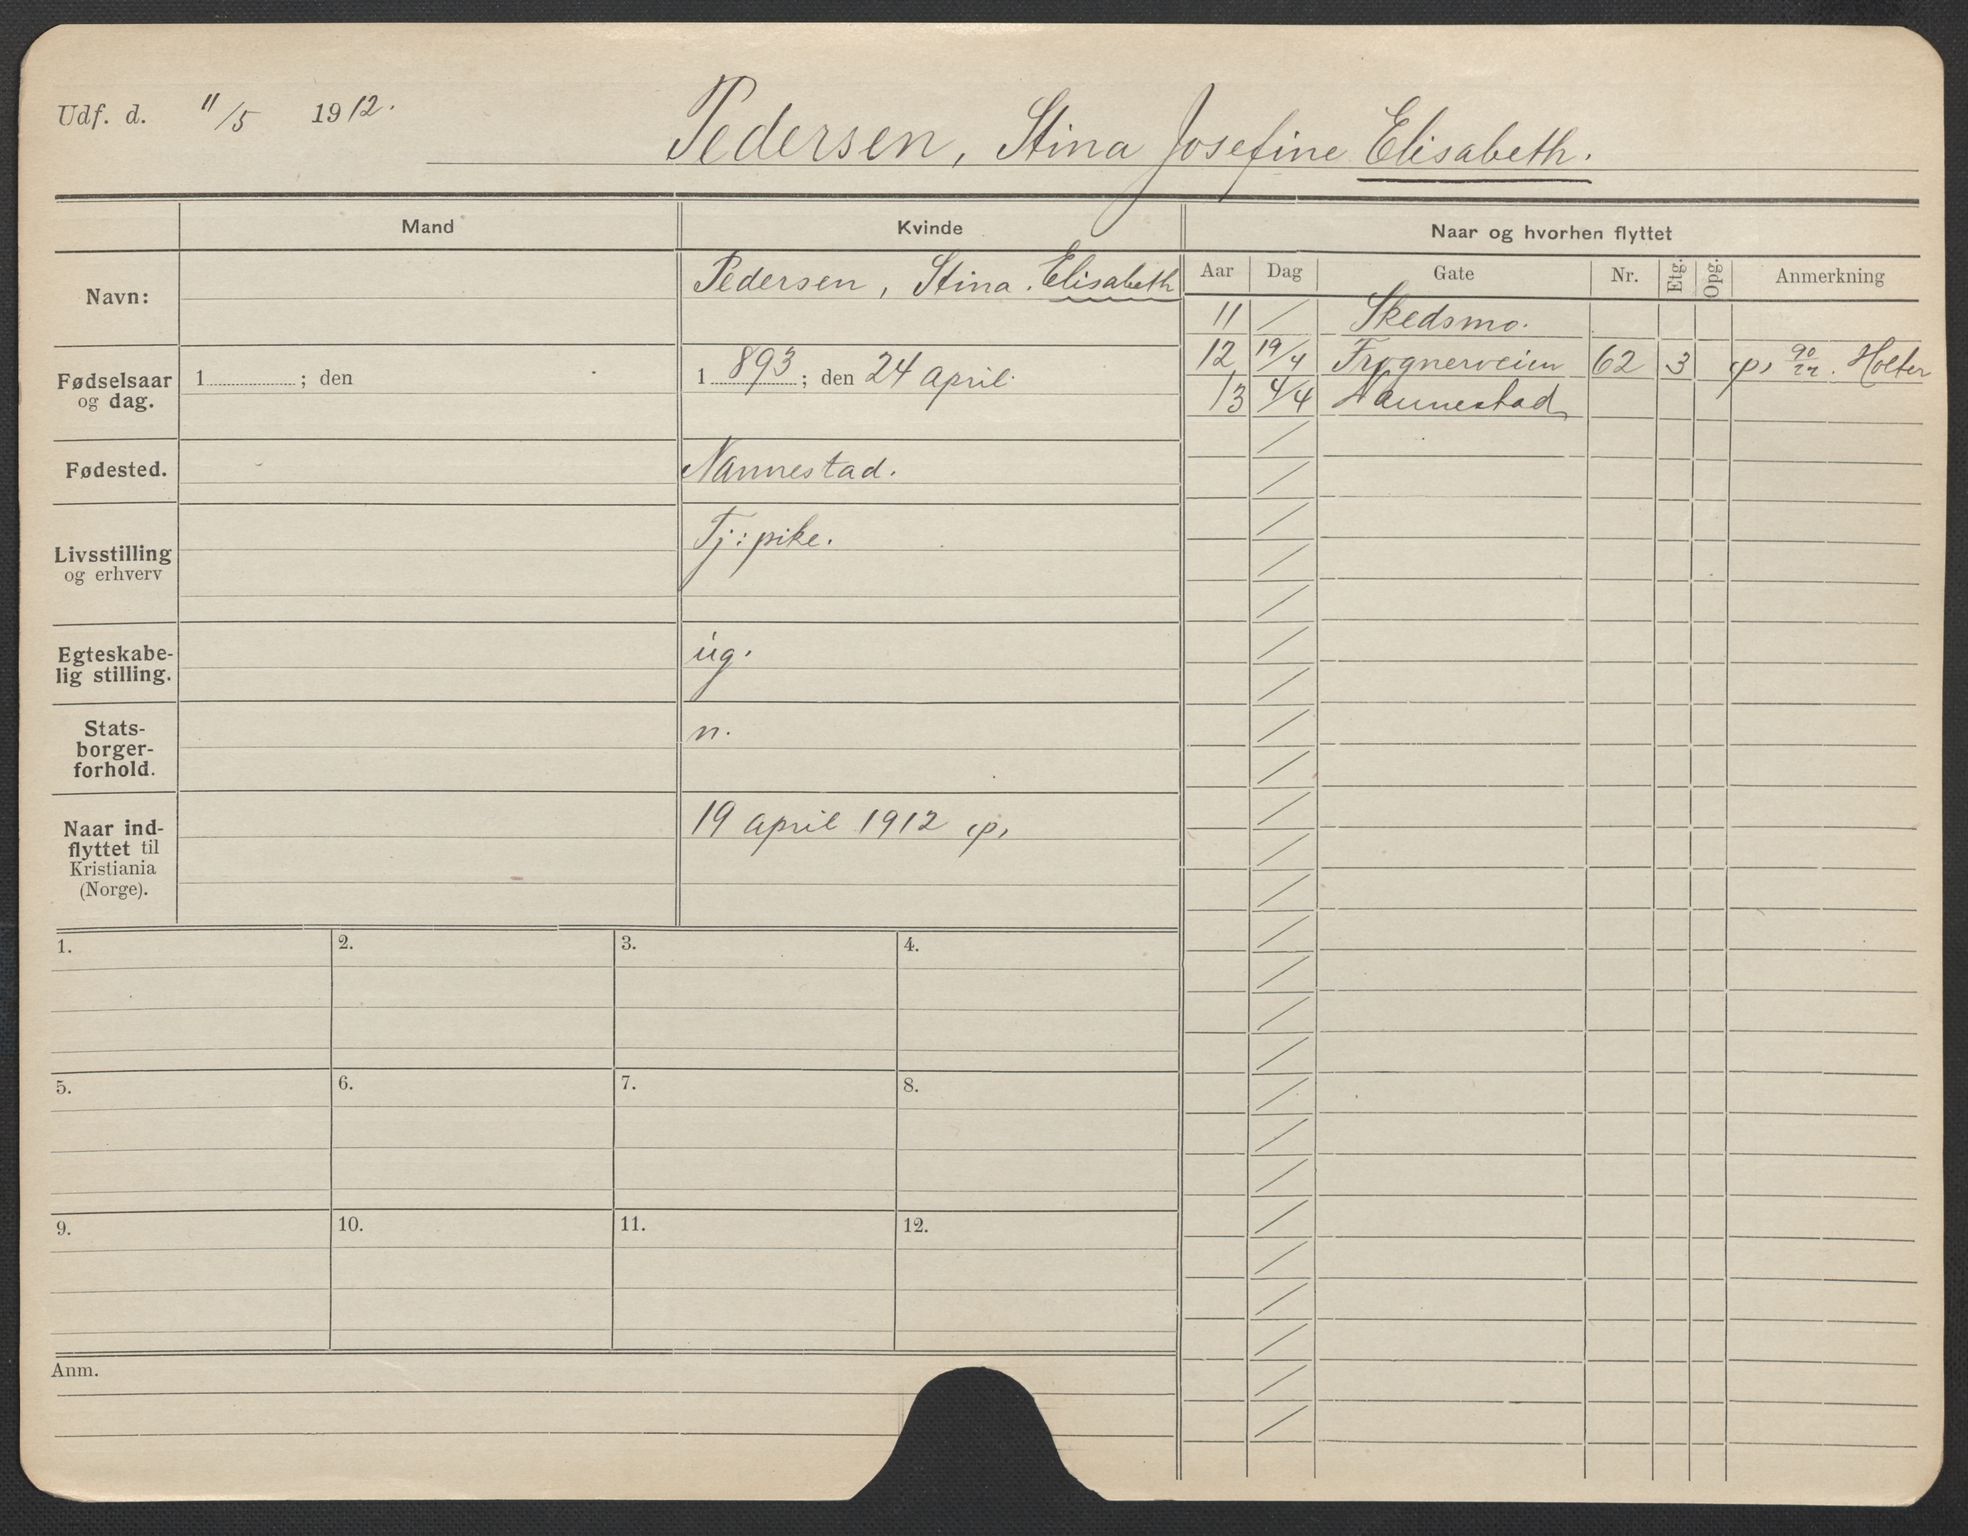 Udf. d. 11/5 1912.
Pedersen, Stina Josefine Elisabeth.
Mand
Kvinde
Naar og hvorhen flyttet
Navn:
Pedersen, Stina. Elisabeth
Aar Dag Gate Nr. Etg. Opg. Anmerkning
11 / Skedsmo.
12 19/4 Frognerveien 62 3 Holter
13 4/4 Nannestad
Fødselsaar
og dag.
1 ; den
1 893 ; den 24 april.
Fødested.
Nannestad.
Livsstilling
og erhverv
Tj: pike.
Egteskabe-
lig stilling.
ug.
Stats-
borger-
forhold.
n.
Naar ind-
flyttet til
Kristiania
(Norge).
19 april 1912
1. 2. 3. 4.
5. 6. 7. 8.
9. 10. 11. 12.
Anm.